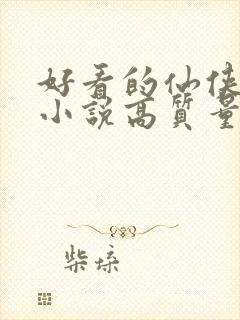 好看的仙侠
小说高质量
柴垛